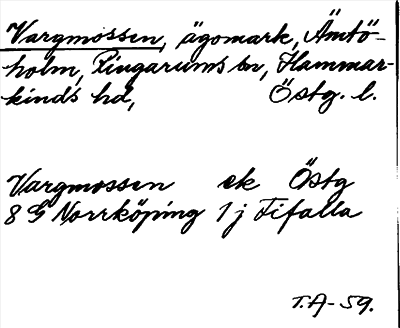 Vargmossen, ägomark, Ämtö-
holm, Ringarums sn, Hammar-
kinds hd, Östg. l.
Vargmossen ek Östg
8 G Norrköping 1 j Fifalla
T.A-59.